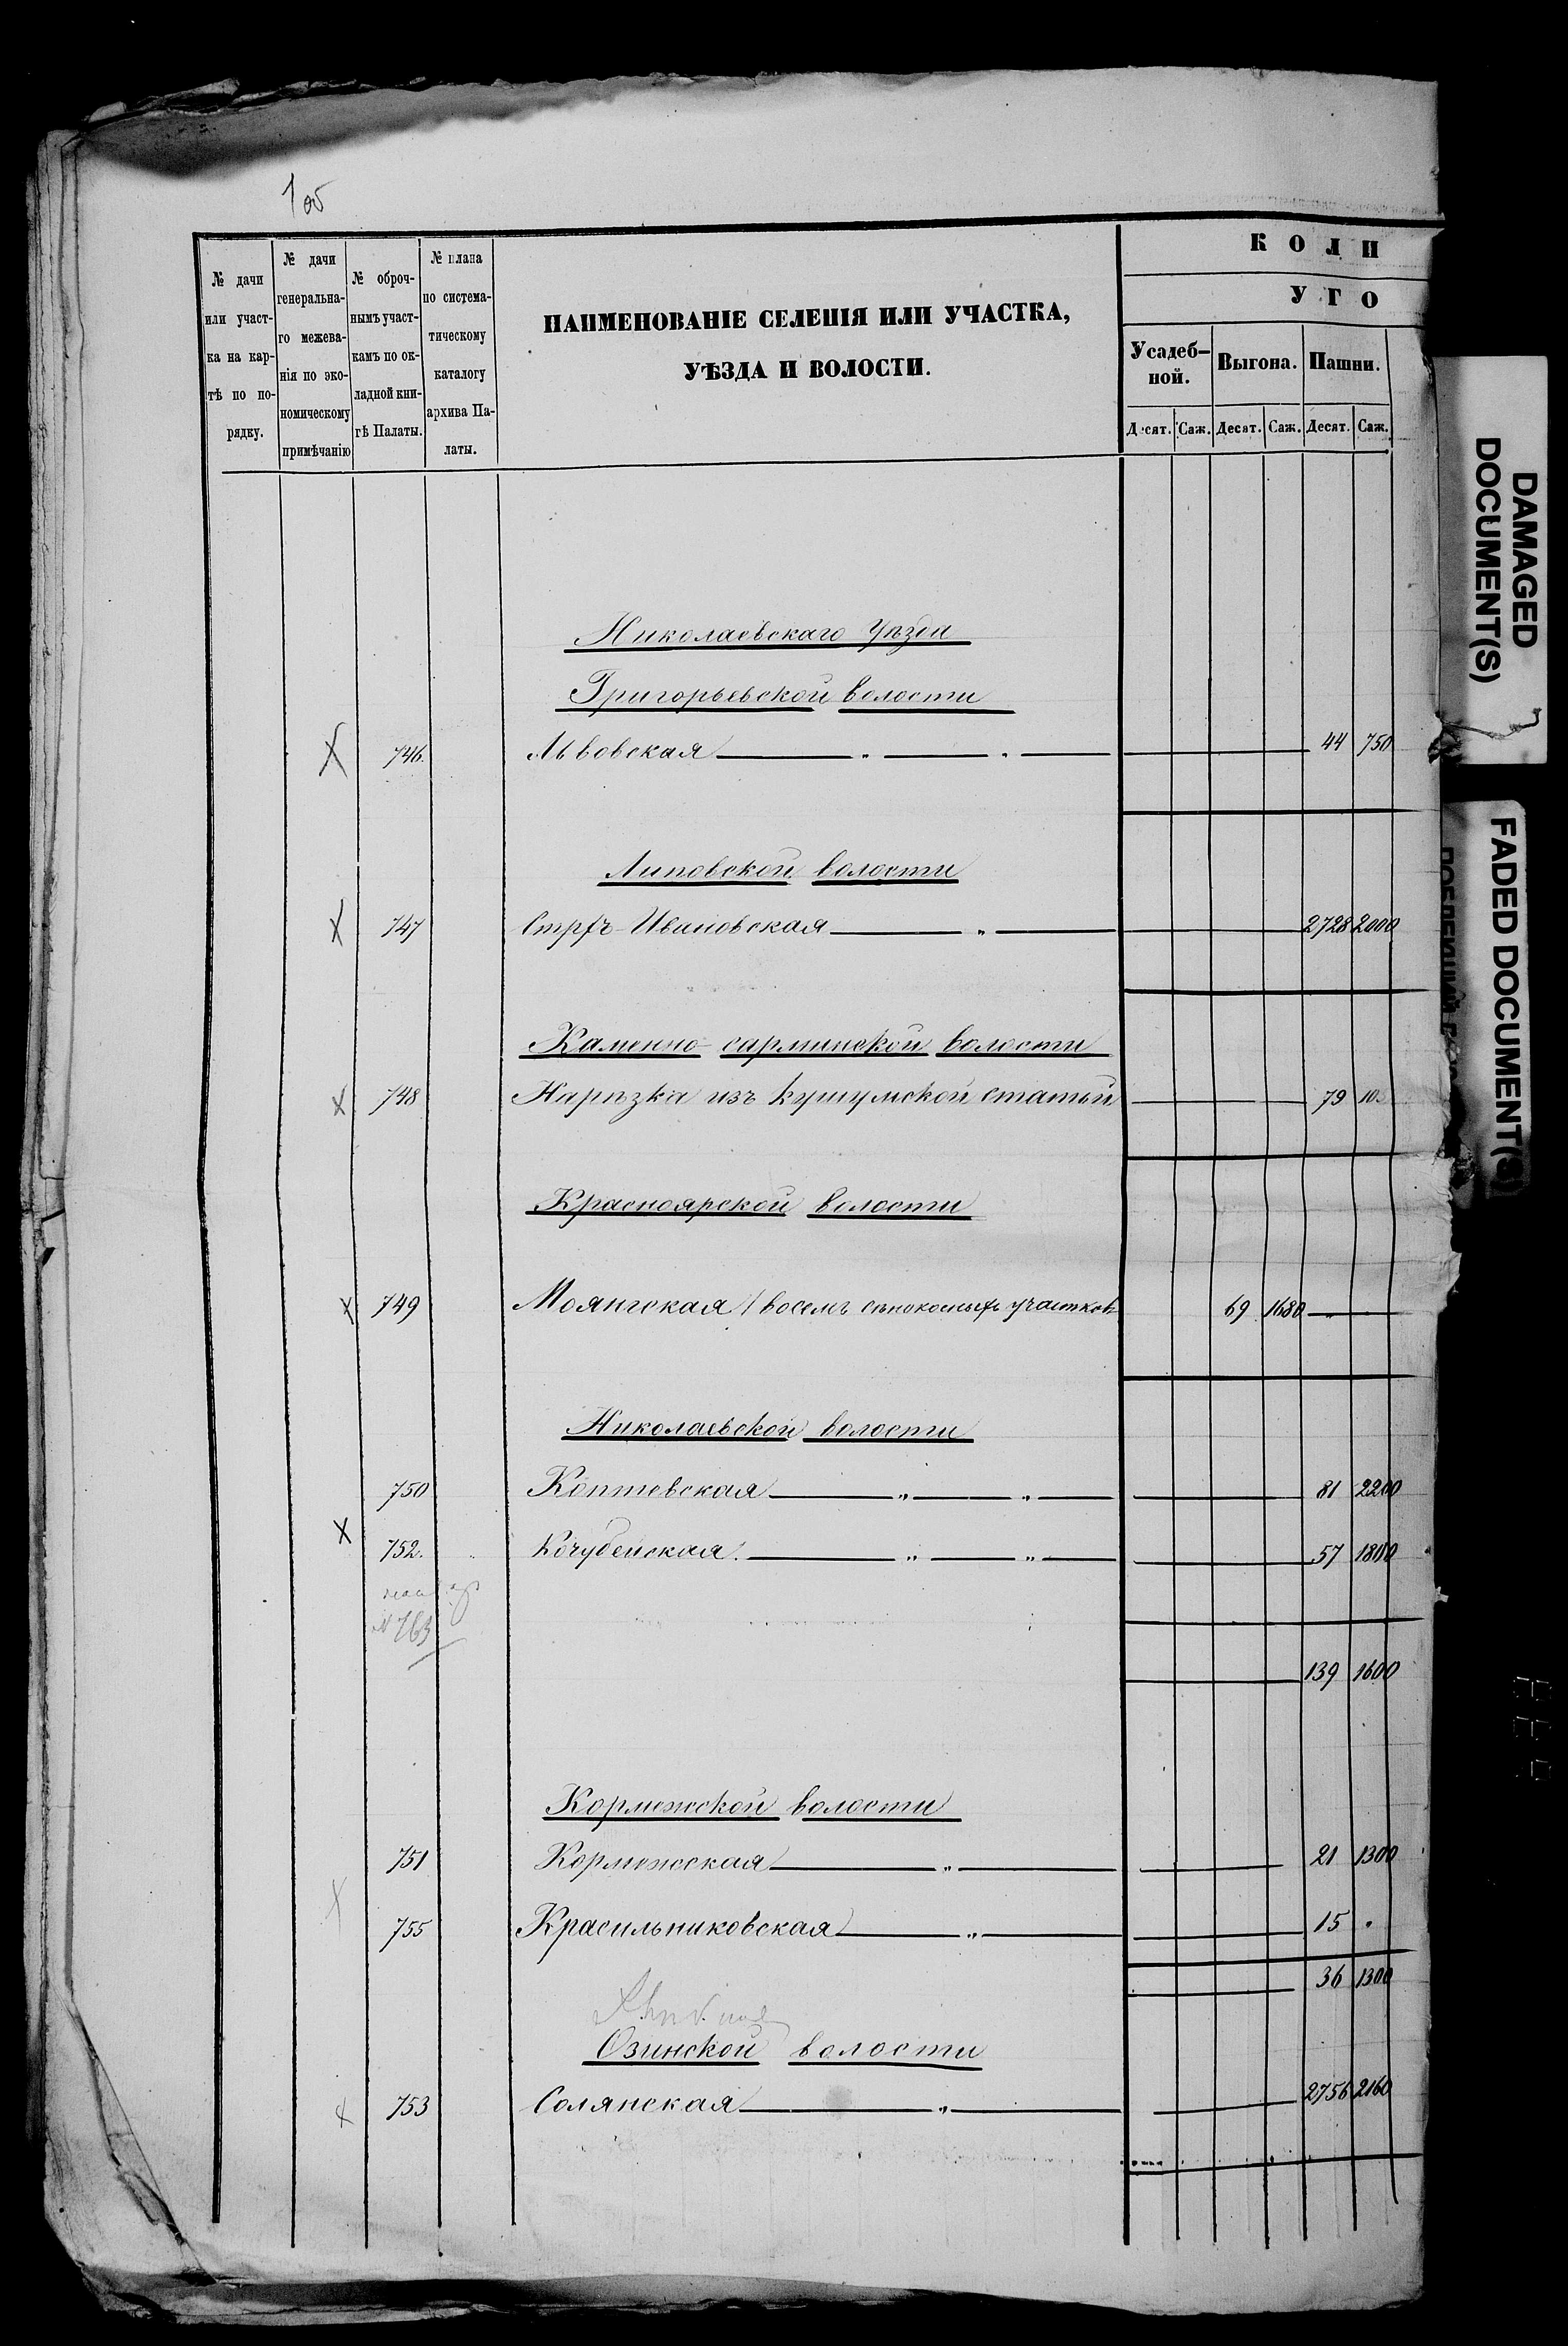 1об
К О Л И
У Г О
№ дачи или участ-ка на кар-тѣ по по-рядку.
№ дачи генеральна-го межева-нія по эко-номическому примѣчанію
№ оброч-нымъ участ-камъ по ок-ладной кни-гѣ Палаты.
№ плана по система-тическому каталогу архива Па-латы.
НАИМЕНОВАНІЕ СЕЛЕНІЯ ИЛИ УЧАСТКА,
УѢЗДА И ВОЛОСТИ.
Усадеб-ной. Выгона. Пашни.
Десят. Саж. Десят. Саж. Десят. Саж.
Николаевскаго Уѣзда
Григорьевской волости
746. Львовская 44 750
Липовской волости
747 Ивановская 2728 2000
Каменно-сарминской волости
748 Нарѣзка изъ Кушумской статьи 79
Красноярской волости
749 Моянгская / восемь сѣнокосныхъ участковъ 69 1680
Николаевской волости
750 Коптевская 81 2200
752. Кочубейская. 57 1800
№ 763
139 1600
Кормежской волости
751 Кормежская 21 1300
755 Красильниковская 15
36 1300
Озинской волости
753 Солянская 2756 2160
DAMAGED
DOCUMENT(S)
FADED DOCUMENT(S)